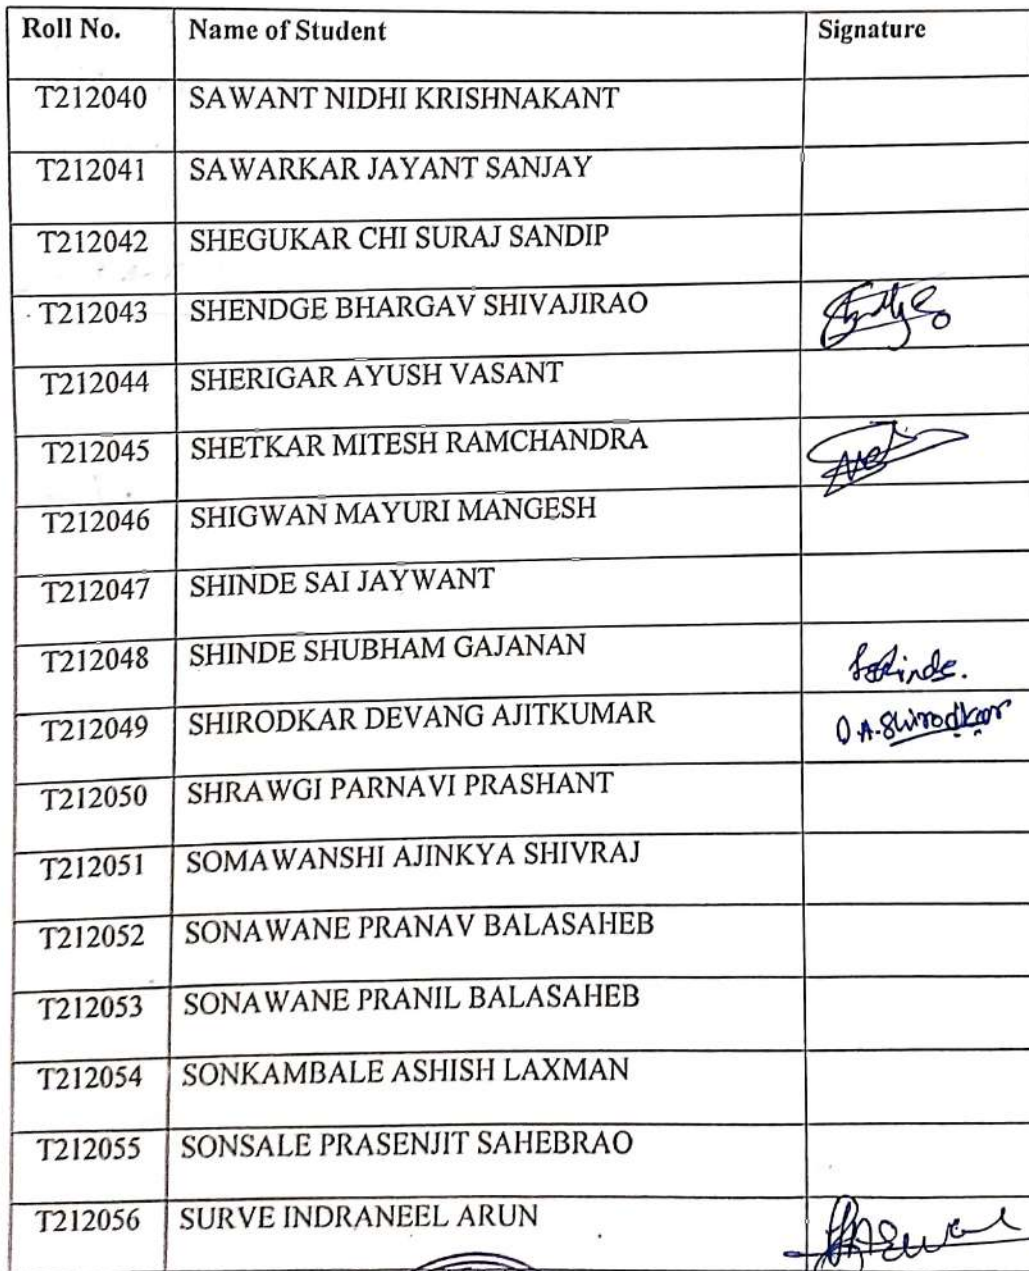 Roll No. Name of Student Signature
T212040 SAWANT NIDHI KRISHNAKANT
T212041 SAWARKAR JAYANT SANJAY
T212042 SHEGUKAR CHI SURAJ SANDIP
T212043 SHENDGE BHARGAV SHIVAJIRAO
T212044 SHERIGAR AYUSH VASANT
T212045 SHETKAR MITESH RAMCHANDRA
T212046 SHIGWAN MAYURI MANGESH
T212047 SHINDE SAI JAYWANT
T212048 SHINDE SHUBHAM GAJANAN
T212049 SHIRODKAR DEVANG AJITKUMAR D.A.Shirodkar
T212050 SHRAWGI PARNAVI PRASHANT
T212051 SOMAWANSHI AJINKYA SHIVRAJ
T212052 SONAWANE PRANAV BALASAHEB
T212053 SONAWANE PRANIL BALASAHEB
T212054 SONKAMBALE ASHISH LAXMAN
T212055 SONSALE PRASENJIT SAHEBRAO
T212056 SURVE INDRANEEL ARUN